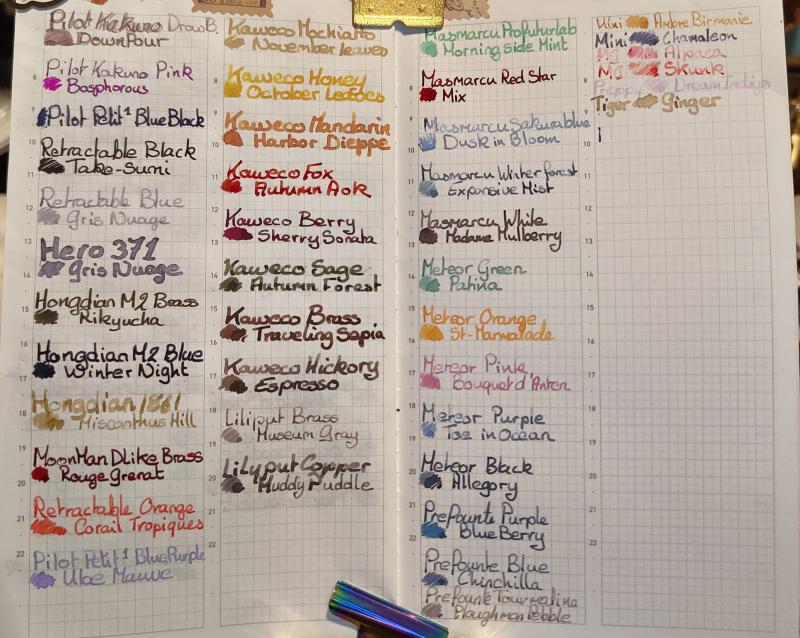 Pilot Kakuno DrawB.
DownPour
Pilot Kakuno Pink
Bosphorous
Pilot Petit¹ Blue Black
Retractable Black
Take-Sumi
Retractable Blue
Gris Nuage
Hero 371
Gris Nuage
Hongdian M2 Brass
Rikyucha
Hongdian M2 Blue
Winter Night
Hongdian 1861
Miscanthus Hill
MoonMan DLike Brass
Rouge Grenat
Retractable Orange
Corail Tropiques
Pilot Petit¹ BluePurple
Ube Mauve
Kaweco Mochiatto
November leaves
Kaweco Honey
October Leaves
Kaweco Mandarin
Harbor Dieppe
Kaweco Fox
Autumn Aok
Kaweco Berry
Sherry Sonata
Kaweco Sage
Autumn Forest
Kaweco Brass
Traveling Sepia
Kaweco Hickory
Espresso
Liliput Brass
Museum Gray
Lilyput Copper
Muddy Puddle
Masmarcu
Morning side Mint
Masmarcu Red Star
Mix
Masmarcu Sakurablue
Dusk in Bloom
Masmarcu Winter forest
Expansive Mist
Masmarcu White
Madame Mulberry
Meteor Green
Patina
Meteor Orange
St-Marmalade
Meteor Pink
Bouquet d'Anten
Meteor Purple
Toe in Ocean
Meteor Black
Allegory
Prefounte Purple
BlueBerry
Prefounte Blue
Chinchilla
Prefounte Tourmaline
Ploughman Pebble
Mini Ambre Birmanie
Mini Chamaleon
Alpaca
Skunk
Preppy Dream Indigo
Tiger Ginger
8
9
10
11
12
13
14
15
16
17
18
19
20
21
22
8
9
10
11
12
13
14
15
16
17
18
19
20
21
22